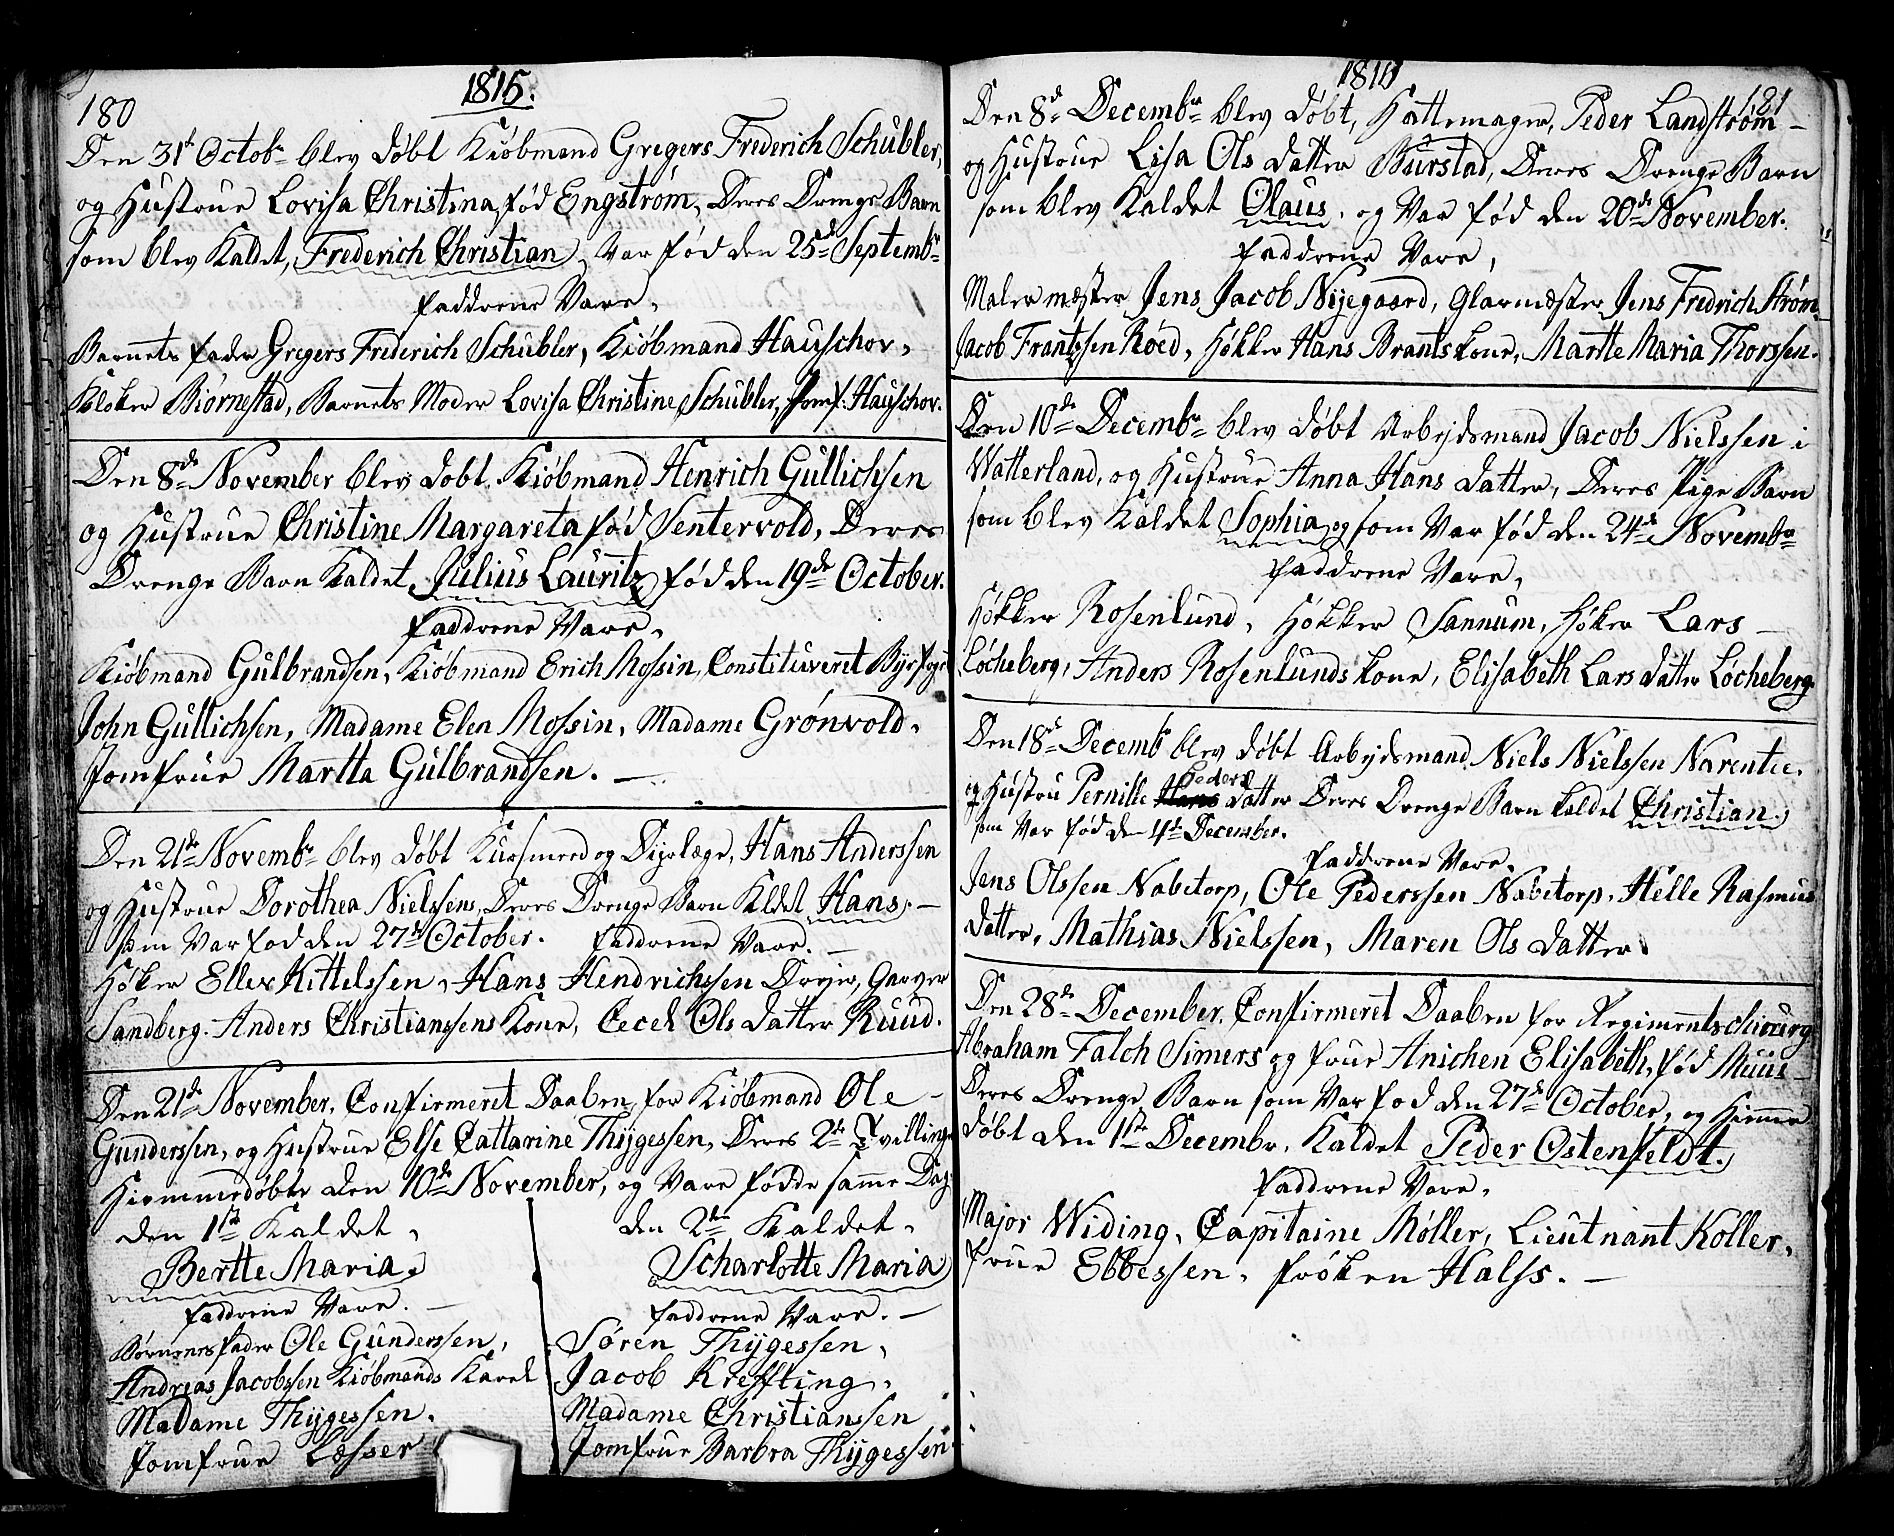 180
1815.
Den 31t Octobr blev døbt Kiøbmand Gregers Frederich Schübler,
og Hustrue Lovisa Christina, fød Engstrøm, Deres Drenge Barn
som blev Kaldet, Frederich Christian, Var fød den 25de Septembr
Faddrene Vare,
Barnets Fader Gregers Frederich Schübler, Kiøbmand Hauschov,
Kloker Biørnestad, Barnets Moder Lovisa Christine Schübler, Jomf. Hauschov.
Den 8de November blev døbt Kiøbmand Henrich Gullichsen
og Hustrue Christine Margareta fød Sentervold, Deres
Drenge Barn Kaldet, Julius Lauritz, fød den 19de October.
Faddrene Vare,
Kiøbmand Gulbrandsen, Kiøbmand Erich Mossin, Constitueret Byefoget
John Gullichsen, Madame Elen Mossin, Madame Grønvold,
Jomfrue Martta Gulbrandsen.
Den 21de Novembr blev døbt Kursmed og Dyrlæge, Hans Anderssen
og Hustrue Dorothea Nielssens, Deres Drenge Barn Kldet Hans,
som Var fød den 27de October. Faddrene Vare.
Høker Ellev Kittelssen, Hans Hendrichssen Dreyer, Garver
Sandberg. Anders Christianssens Kone, Cecel Ols datter Ruud.
Den 21de November, Confirmeret Daaben for Kiøbmand Ole
Gunderssen, og Hustrue Else Cattarine Thygessen, Deres 2de Tvillinge
Hiemmedøbte den 10de November, og Vare fødde samme Dag.
den 1ste Kaldet,
Bertte Maria.
Faddrene Vare.
Børnenes Fader Ole Gunderssen,
Andreas Jacobssen Kiøbmands Karl
Madame Thygessen.
Jomfrue Læsser
den 2den Kaldet,
Scharlotte Maria
Faddrene Vare.
Søren Thygessen,
Jacob Kreffting,
Madame Christianssen
Jomfrue Barbra Thygessen
1815
181
Den 8de Decembr blev døbt, Hattemager, Peder Landstrøm
og Hustrue Lisa Ols datter Burstad, Deres Drenge Barn
som blev Kaldet Olaus, og Var fød den 20de November.
Faddrene Vare,
Maler mæster Jens Jacob Nyegaard, Glarmæster Jens Fredrich Strøm
Jacob Frantzsen Røed, Høkker Hans Brants kone, Martte Maria Thorssen.
Den 10de Decembr blev døbt Arbejdsmand Jacob Nielssen i
Watterland, og Hustrue Anna Hans datter, Deres Pige Barn
som blev Kaldet Sophia, og som Var fød den 24de Novembr
Faddrene Vare,
Høkker Rosenlund, Høkker Sannum, Høker Lars
Løcheberg, Anders Rosenlunds kone, Elisabeth Lars datter Løcheberg
Den 18de Decembr blev døbt Arbejdsmand Niels Nielssen Narentee.
Peders
og Hustru Pernille Hans datter Deres Drenge Barn kaldet Christian.
som Var fød den 4de December.
Faddrene Vare.
Jens Olssen Nabetorp, Ole Pederssen Nabetorp. Helle Rasmus
datter, Mathias Nielssen, Maren Ols datter.
Den 28de December, Confirmeret Daaben for Regimentschirurg
Abraham Falch Simers og frue Anichen Elisabeth, fød Muus
Deres Drenge Barn som Var fød den 27de October, og Hiemme
døbt den 1ste Decembr, Kaldet Peder Ostenfeldt.
Faddrene Vare,
Major Widing, Capitaine Møller, Lieutnant Koller,
Frue Ebbessen, Frøken Halss.